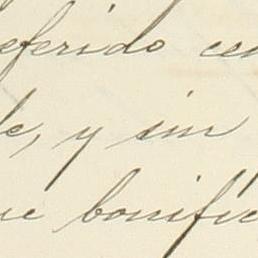 eferido cen
de, y sin
ue bonific